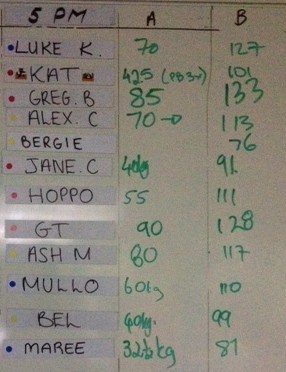 5 PM A B
LUKE K. 70 127
KAT 425 (PB 3kg) 101
GREG. B 85 133
ALEX. C 70 → 113
BERGIE 76
JANE. C 40kg 91
HOPPO 55 111
GT 90 128
ASH M 80 117
MULLO 60kg 110
BEL 40kg. 99
MAREE 32.5kg 81